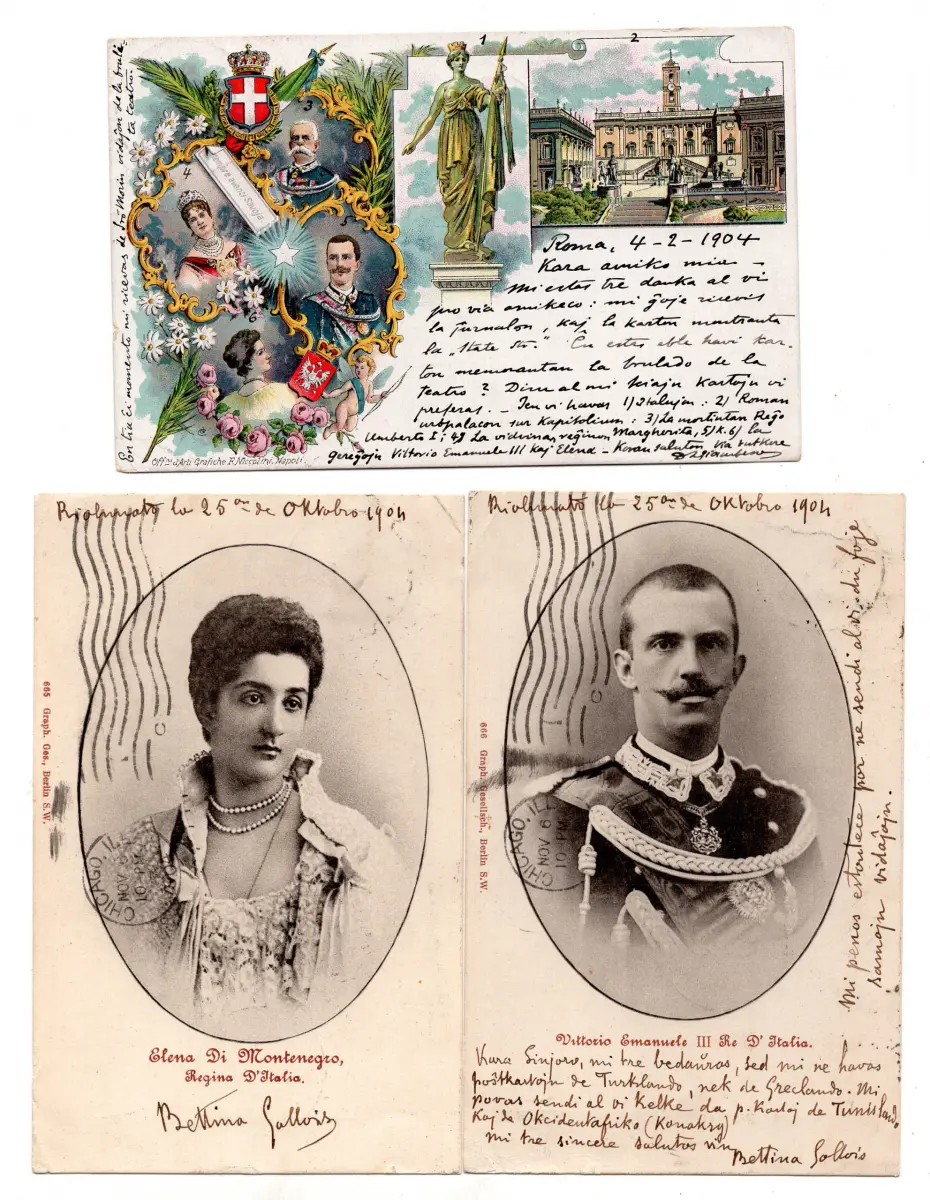 1
2
3
4
6
Sempre avanti Savoja
Roma, 4-2-1904
Kara amiko mia –
Mi estas tre danka al vi
pro via amikeco: mi ĝoje ricevis
la ĵurnalon, kaj la karton montranta
la „State Str.” Ĉu estas eble havi kar-
ton memorantan la brulado de la
teatro? Diru al mi kiajn kartojn vi
preferas. – Jen vi havas 1) Italujon: 2) Roman
urbpalacon sur Kapitolium: 3) La mortintan Reĝo
Umberto I; 4) La vidvinan reĝinon Margherita, 5) k. 6) la
gereĝojn Vittorio Emanuele III kaj Elena – Koran saluton via tutkore
En tia ĉi momento mi ricevas de Sro Morin vidaĵon de la brulé-
ta teatro.
Offne d'Arti Grafiche F. Niccolini, Napoli
Riolunato la 25an de Oktobro 1904
665 Graph. Ges., Berlin S.W.
CHICAGO, ILL.
NOV
Elena Di Montenegro,
Regina D'Italia.
Bettina Gallois
Riolunato la 25an de Oktobro 1904
666 Graph. Gesellsch., Berlin S.W.
CHICAGO, ILL.
NOV 6
10 PM
Mi penos estontece por ne sendi al vi du foje
samajn vidaĵojn.
Vittorio Emanuele III Re D'Italia.
Kara Sinjoro, mi tre bedaŭras, sed mi ne havas
poŝtkartojn de Turklando, nek de Greclando. Mi
povas sendi al vi kelke da p. kartoj de Tunislando
kaj de Okcidentafriko (Konakry)
Mi tre sincere salutas vin
Bettina Gallois